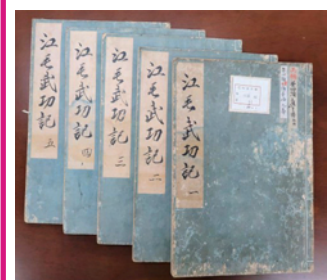 江毛武功記 一
江毛武功記 二
江毛武功記 三
江毛武功記 四
江毛武功記 五